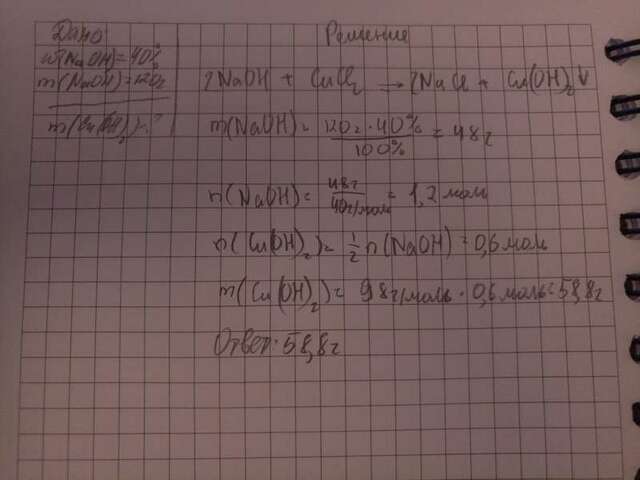 Дано
w(NaOH)=40%
m(NaOH)=120г
m(Cu(OH)₂)-?
Решение
2NaOH + CuCl₂ → 2NaCl + Cu(OH)₂↓
m(NaOH)= 120г·40% / 100% = 48г
n(NaOH)= 48г / 40г/моль = 1,2моль
n(Cu(OH)₂)= 1/2 n(NaOH)=0,6моль
m(Cu(OH)₂)= 98г/моль · 0,6моль=58,8г
Ответ: 58,8г